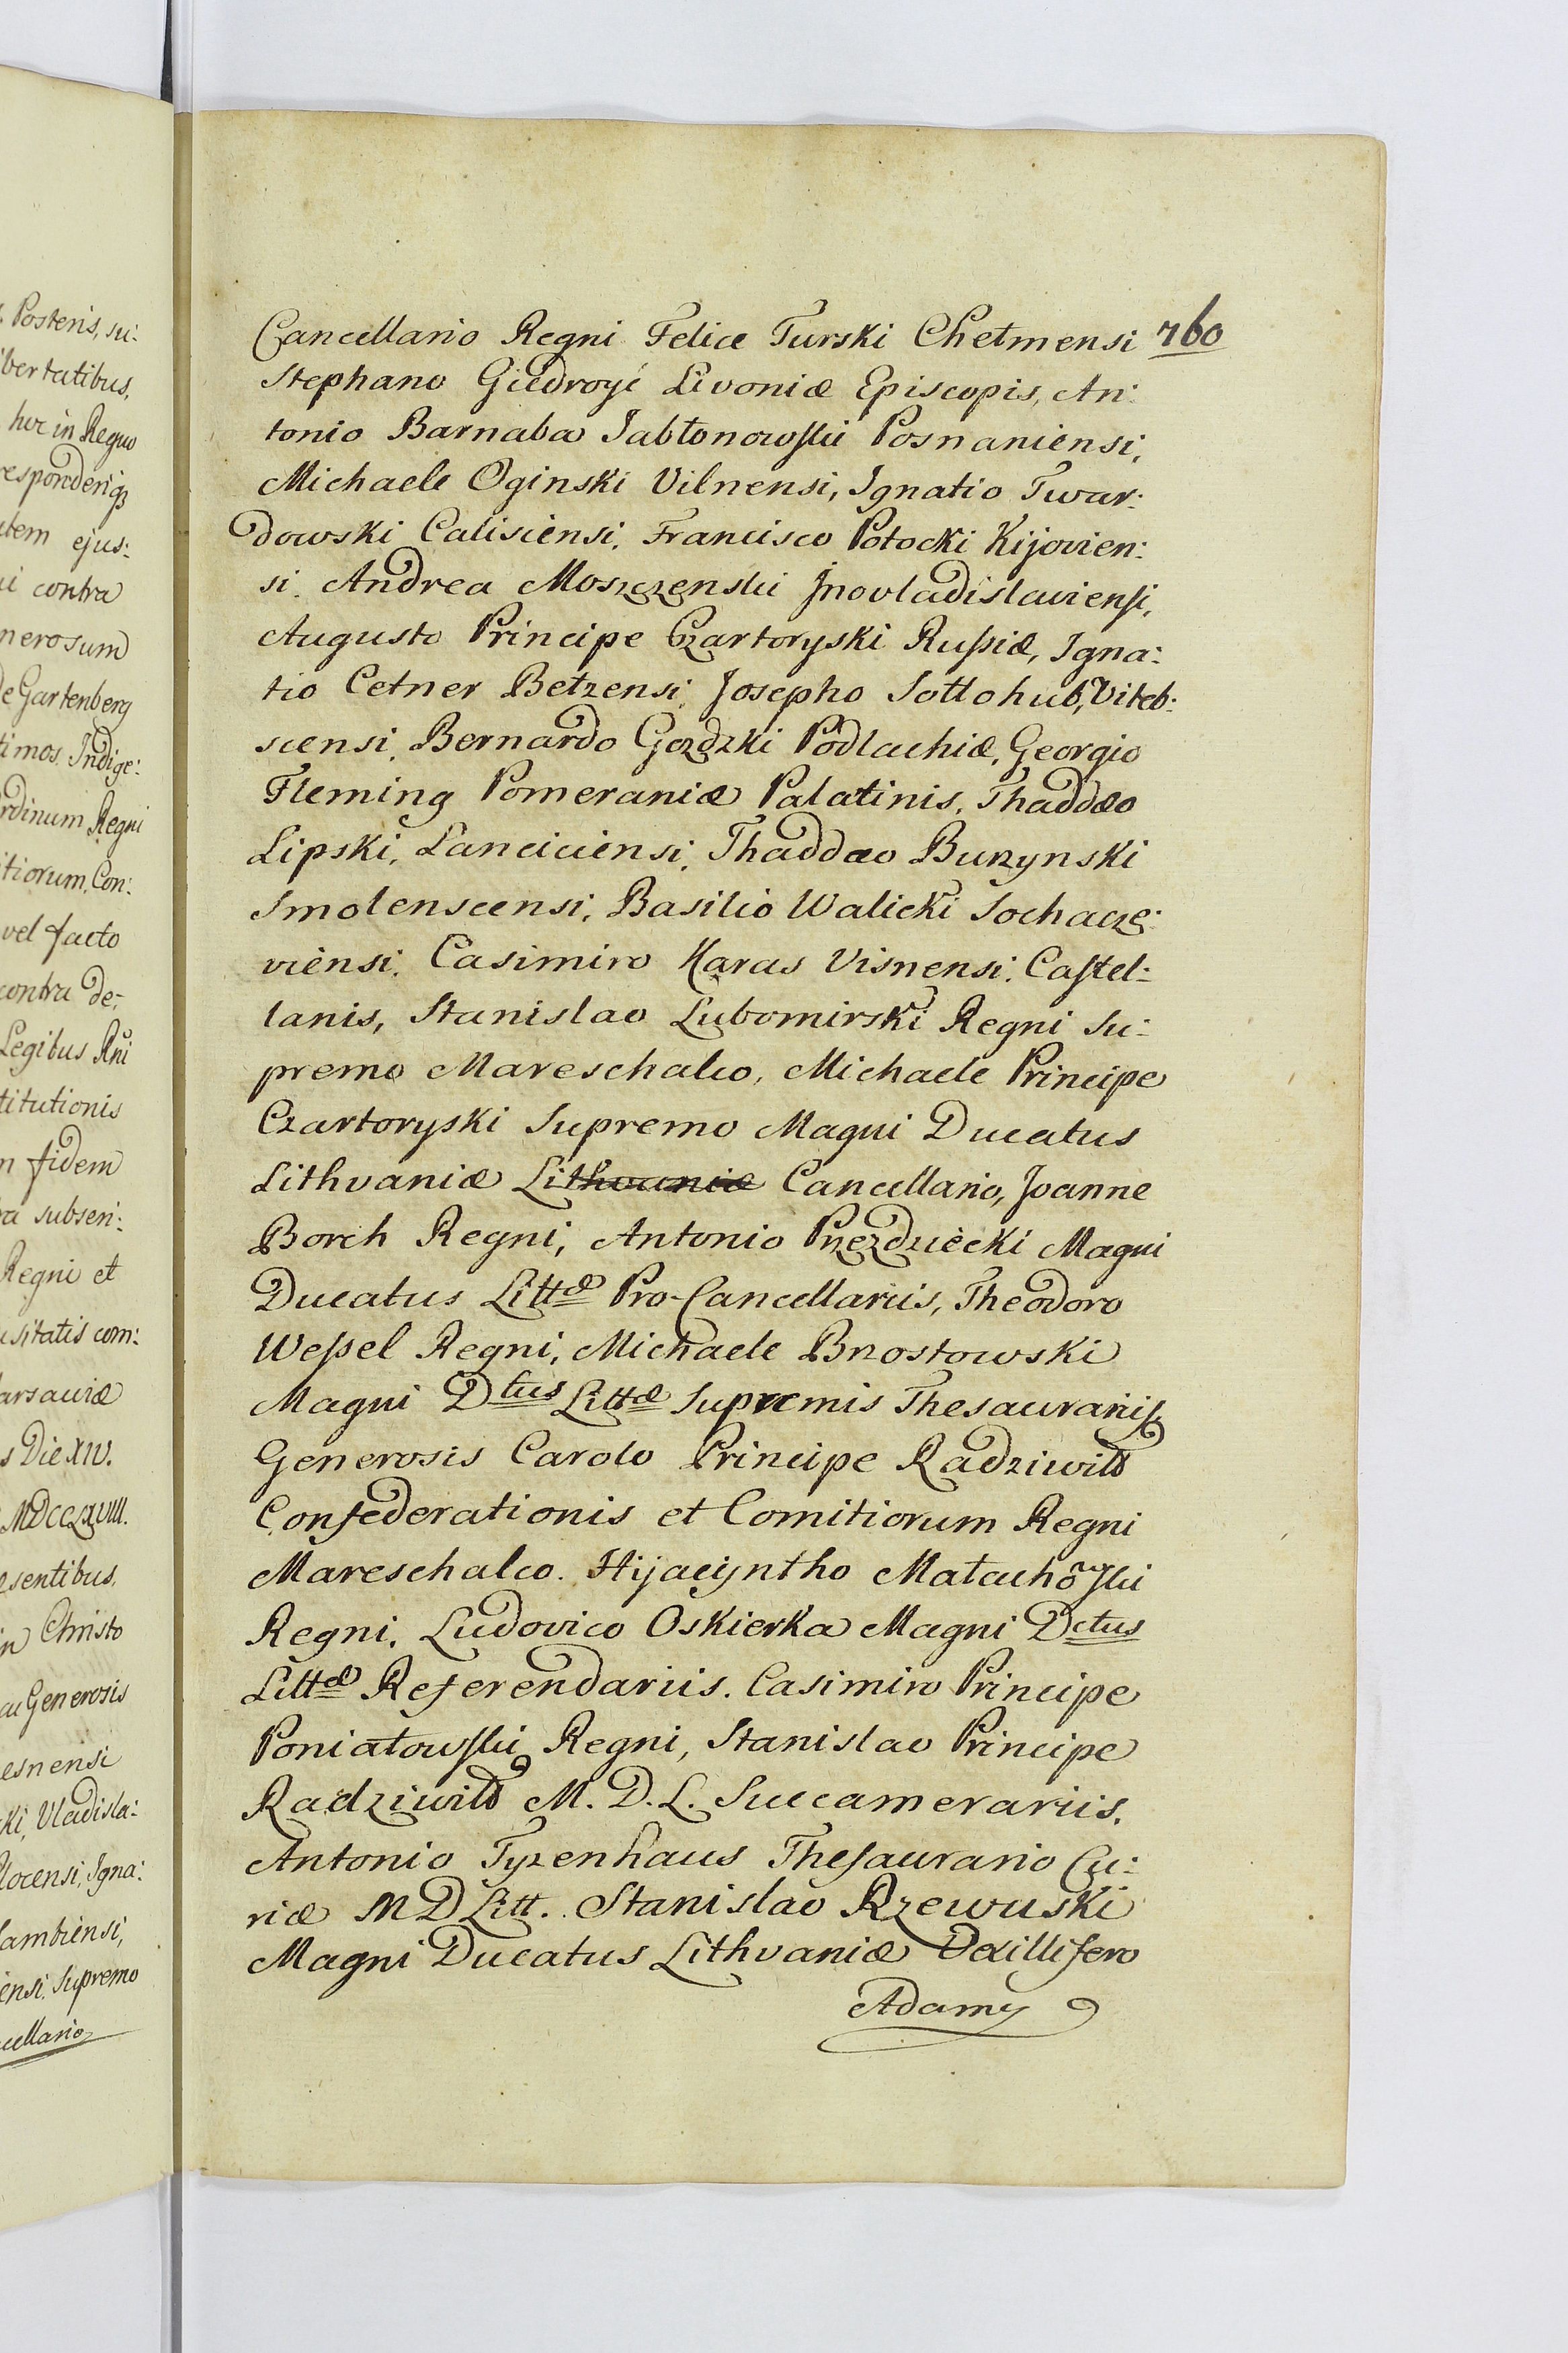 Posteris, su:
bertatibus,
hoc in Regno
respondenqȝ
utem ejus:
ui contra
nerosum
de Gartenberg
timos Indige:
rdinum Regni
tiorum, Con:
vel facto
contra de:
Legibus Rni
titutionis
n fidem
ra subscri:
Regni et
usitatis com:
arsaviæ
s Die XIV.
MDCCLXVIII.
esentibus.
in Christo
ac Generosis
esnensi
ki, Vladisla:
locensi, Igna:
lambiensi,
ensi, Supremo
cellario
Cancellario Regni Felice Turski Chełmensi 760
Stephano Giedroyć Livoniæ Episcopis, An:
tonio Barnaba Jabłonowski Posnaniensi,
Michaele Oginski Vilnensi, Ignatio Twar:
dowski Calisiensi, Francisco Potocki Kijovien:
si, Andrea Moszczenski Jnovladislaviensi,
Augusto Principe Czartoryski Russiæ, Igna:
tio Cetner Betzensi, Josepho Sołłohub, Viteb:
scensi, Bernardo Gozdzki Podlachiæ, Georgio
Fleming Pomeraniæ Palatinis, Thaddæo
Lipski, Lanciciensi, Thaddæo Burzynski
Smolenscensi, Basilio Walicki Sochacze:
viensi, Casimiro Karas Visnensi, Castel:
lanis, Stanislao Lubomirski Regni Su:
premo Mareschalco, Michaele Principe
Czartoryski Supremo Magni Ducatus
Lithvaniæ Lithvaniæ Cancellario, Joanne
Borch Regni, Antonio Przezdziecki Magni
Ducatus Littæ Pro-Cancellariis, Theodoro
Wessel Regni, Michaele Brzostowski
Magni Dtus Littæ Supremis Thesaurariis,
Generosis Carolo Principe Radziwiłł
Confederationis et Comitiorum Regni
Mareschalco. Hijacyntho Małachōski
Regni, Ludovico Oskierka Magni Dctus
Littæ Referendariis. Casimiro Principe
Poniatowski Regni, Stanislao Principe
Radziwiłł M. D. L. Succamerariis.
Antonio Tyzenhaus Thesaurario Cu:
riæ M D Litt. Stanislao Rzewuski
Magni Ducatus Lithvaniæ Vexillifero
Adamo